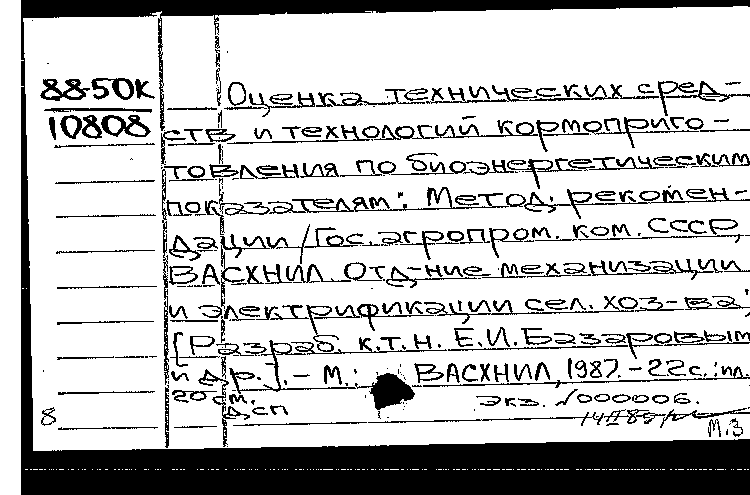 88-50К
10808
Оценка технических сред-
ств и технологий кормоприго-
товления по биоэнергетическим
показателям: Метод. рекомен-
дации / Гос. агропром. ком. СССР,
ВАСХНИЛ. Отд-ние механизации
и электрификации сел. хоз-ва;
[Разраб. к.т.н. Е.И. Базаровым
и др.]. - М.: ВАСХНИЛ, 1987. - 22 с.: ил.
20 см.
ДСП экз. №000006.
8
М.З